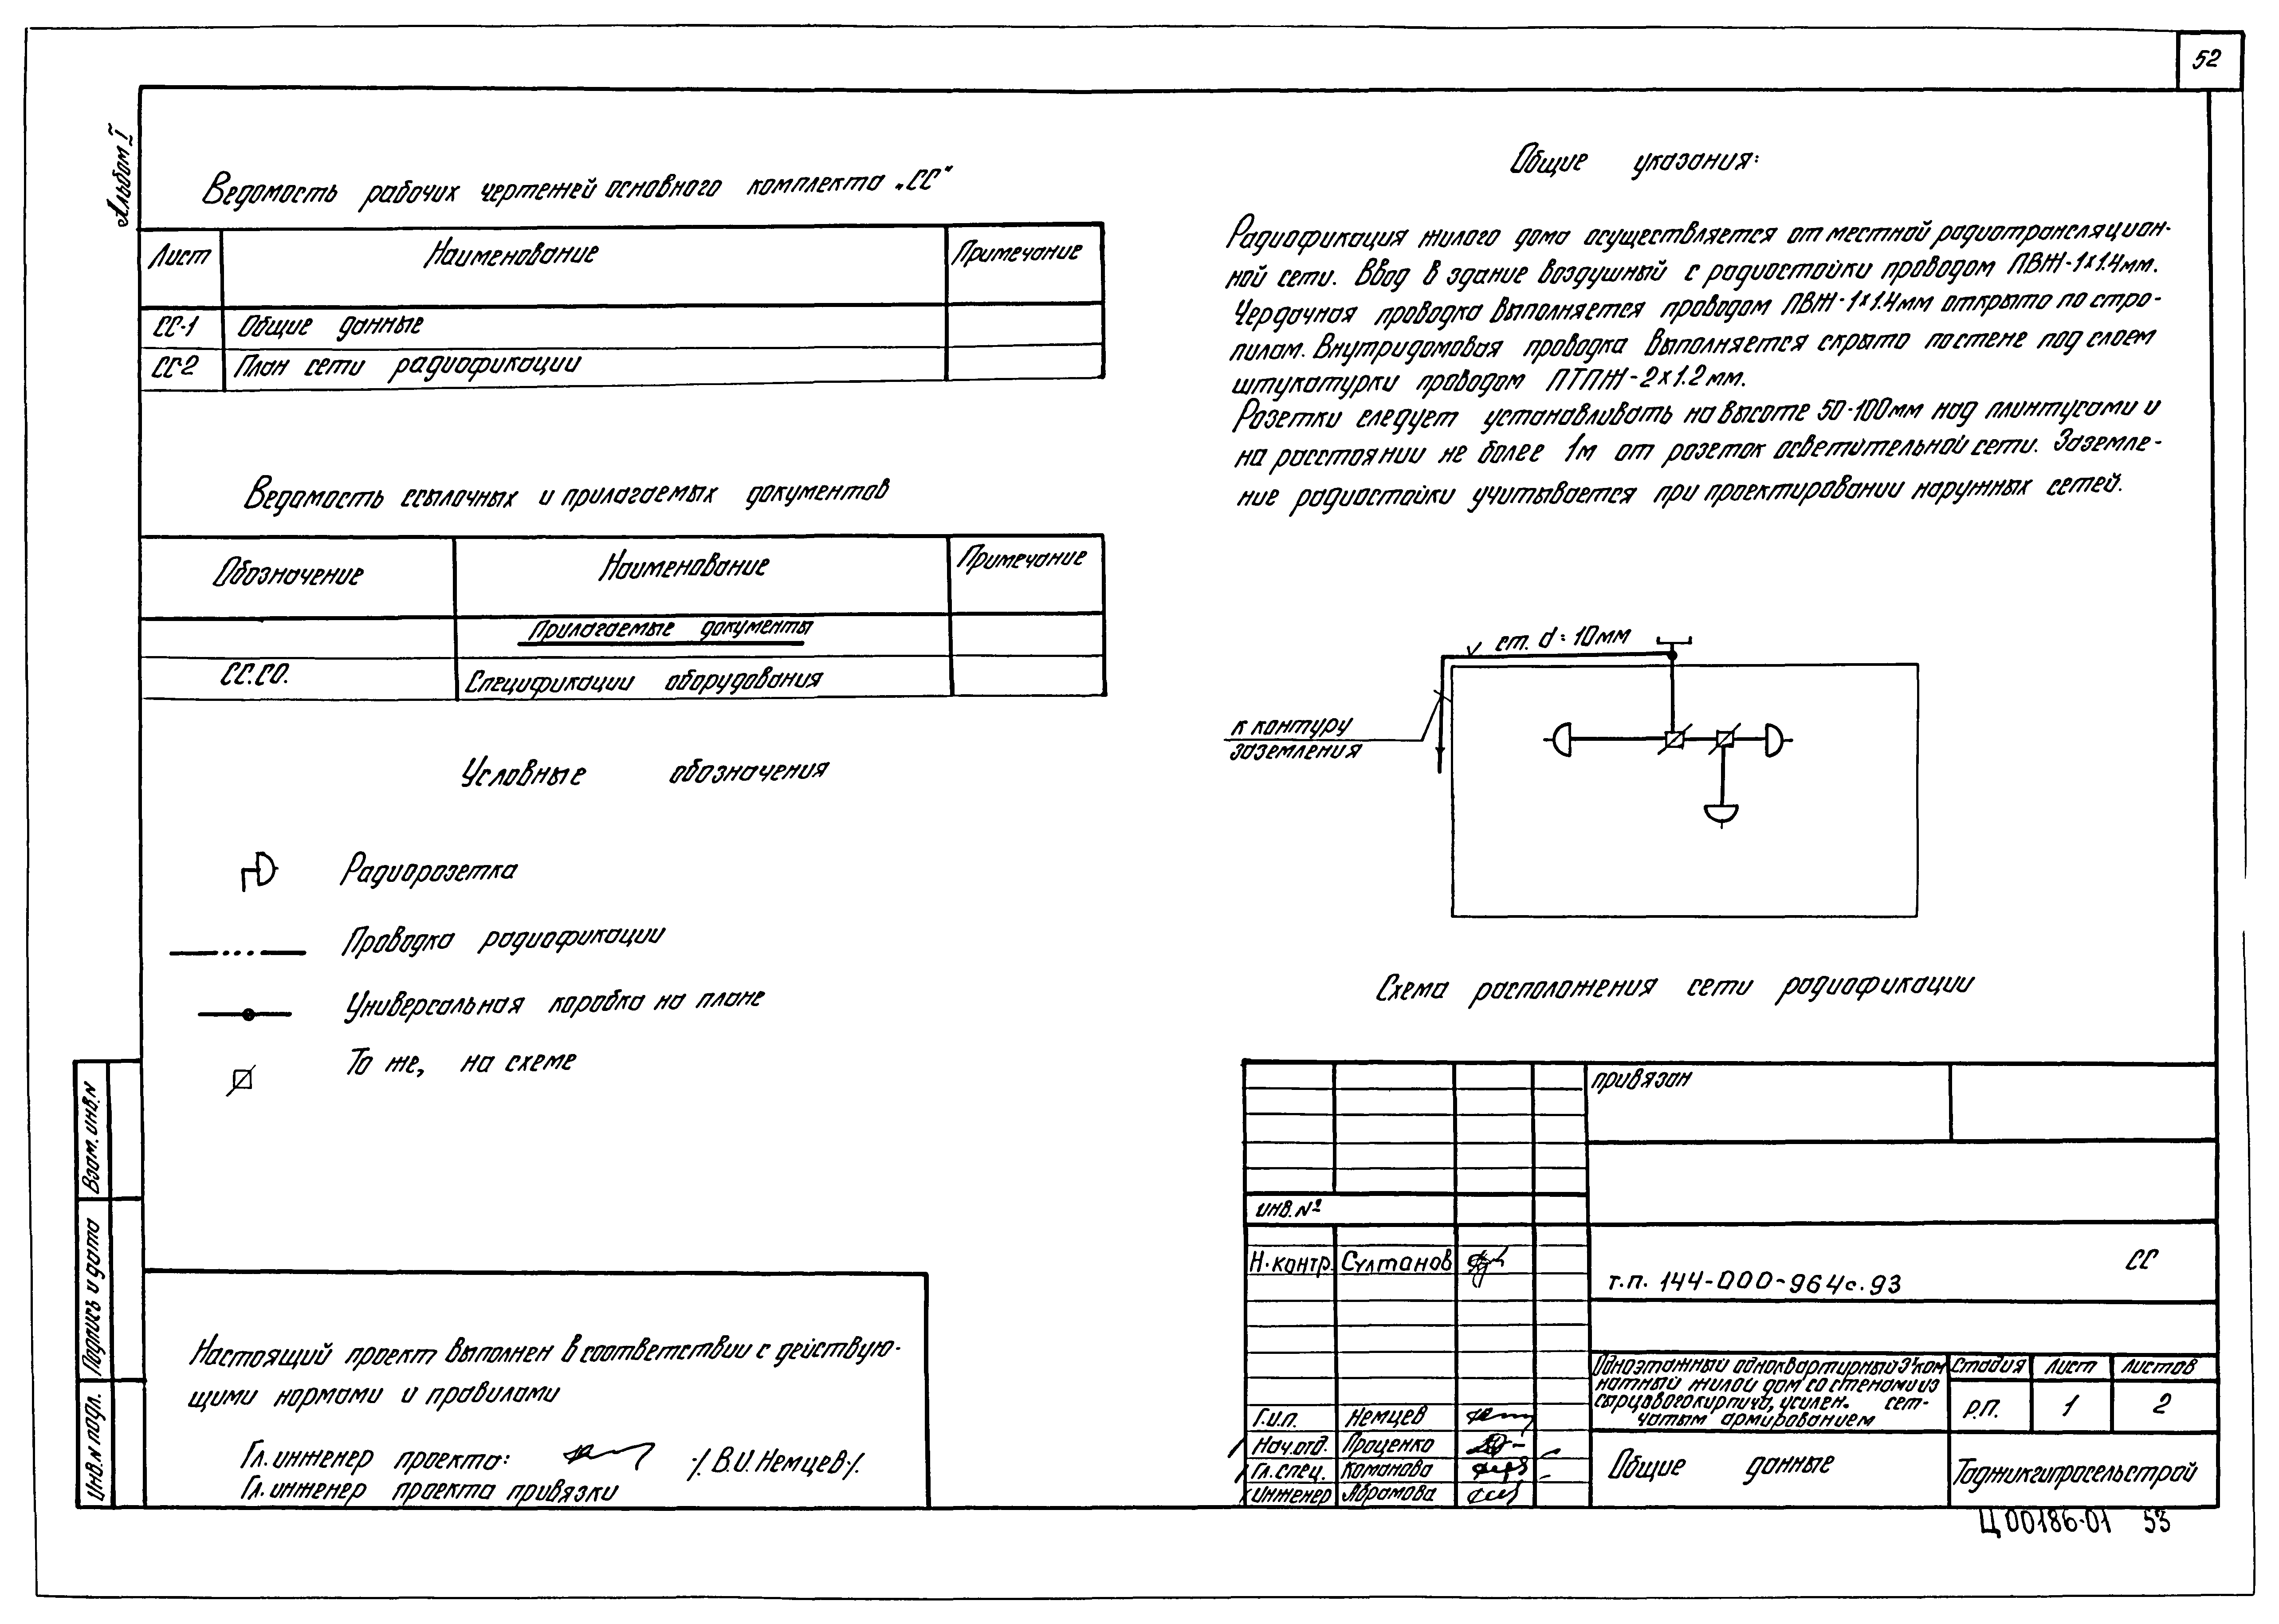 52
Альбом I
Ведомость рабочих чертежей основного комплекта „СС"
Лист Наименование Примечание
СС-1 Общие данные
СС-2 План сети радиофикации
Ведомость ссылочных и прилагаемых документов
Обозначение Наименование Примечание
Прилагаемые документы
СС.СО. Спецификации оборудования
Условные обозначения
Радиорозетка
Проводка радиофикации
Универсальная коробка на плане
То же, на схеме
Общие указания:
Радиофикация жилого дома осуществляется от местной радиотрансляцион-
ной сети. Ввод в здание воздушный с радиостойки проводом ПВЖ-1х1.4мм.
Чердачная проводка выполняется проводом ПВЖ-1х1.4мм открыто по стро-
пилам. Внутридомовая проводка выполняется скрыто по стене под слоем
штукатурки проводом ПТПЖ-2х1.2мм.
Розетки следует устанавливать на высоте 50-100мм над плинтусами и
на расстоянии не более 1м от розеток осветительной сети. Заземле-
ние радиостойки учитывается при проектировании наружных сетей.
ст. d=10мм
к контуру
заземления
Схема расположения сети радиофикации
Взам. инв.N
Подпись и дата
Инв.N подл.
Настоящий проект выполнен в соответствии с действую-
щими нормами и правилами
Гл. инженер проекта: /В.И. Немцев/.
Гл. инженер проекта привязки
привязан
инв. №
Н.контр. Султанов
т.п. 144-000-964с.93 СС
Г.и.п. Немцев
Нач.отд. Проценко
Гл.спец. Команова
инженер Абрамова
Одноэтажный одноквартирный 3х ком
натный жилой дом со стенами из
сырцового кирпича, усилен. сет-
чатым армированием
Стадия лист листов
Р.П. 1 2
Общие данные
Таджикгипросельстрой
Ц00186-01 53